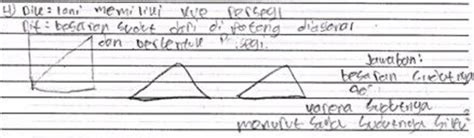 4) Dik: Lani memiliki kue persegi
Dit: besaran sudut dari di potong diagonal
dan berbentuk segi.
Jawaban:
besaran sudutnya
90°
karena sudutnya
menurut saya sudutnya siku